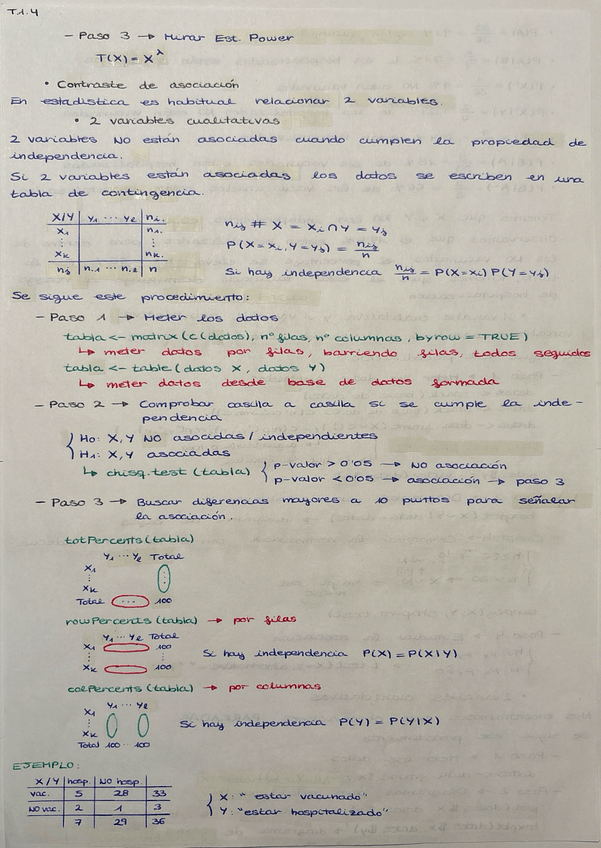 T.1.4
- Paso 3 → Mirar Est. Power
T(X) = X^λ
• Contraste de asociación
En estadística es habitual relacionar 2 variables.
• 2 variables cualitativas
2 variables NO están asociadas cuando cumplen la propiedad de
independencia.
Si 2 variables están asociadas los datos se escriben en una
tabla de contingencia.
X/Y | y₁ ... yₗ | nᵢ.
x₁ | | n₁.
⋮ | | ⋮
xₖ | | nₖ.
nⱼ | n.₁ ... n.ₗ | n
nᵢⱼ # X = xᵢ ∩ Y = yⱼ
P(X = xᵢ, Y = yⱼ) = nᵢⱼ/n
Si hay independencia nᵢⱼ/n = P(X=xᵢ) P(Y=yⱼ)
Se sigue este procedimiento:
- Paso 1 → Meter los datos
tabla <- matrix(c(datos), nº filas, nº columnas, byrow = TRUE)
↳ meter datos por filas, barriendo filas, todos seguidos
tabla <- table(datos X, datos Y)
↳ meter datos desde base de datos formada
- Paso 2 → Comprobar casilla a casilla si se cumple la inde-
pendencia
{ H₀: X, Y NO asociadas / independientes
H₁: X, Y asociadas
↳ chisq.test (tabla) { p-valor > 0'05 → NO asociación
p-valor < 0'05 → asociación → paso 3
- Paso 3 → Buscar diferencias mayores a 10 puntos para señalar
la asociación.
totPercents (tabla)
Y₁ ... Yₗ Total
X₁
⋮ ⋮
Xₖ
Total ... 100
rowPercents (tabla) → por filas
Y₁ ... Yₗ Total
X₁ 100
⋮ ⋮
Xₖ 100
Si hay independencia P(X) = P(X|Y)
colPercents (tabla) → por columnas
Y₁ ... Yₗ
X₁
⋮
Xₖ
Total 100 ... 100
Si hay independencia P(Y) = P(Y|X)
EJEMPLO:
X/Y | hosp. | NO hosp. |
vac. | 5 | 28 | 33
NO vac. | 2 | 1 | 3
| 7 | 29 | 36
{ X: "estar vacunado"
Y: "estar hospitalizado"